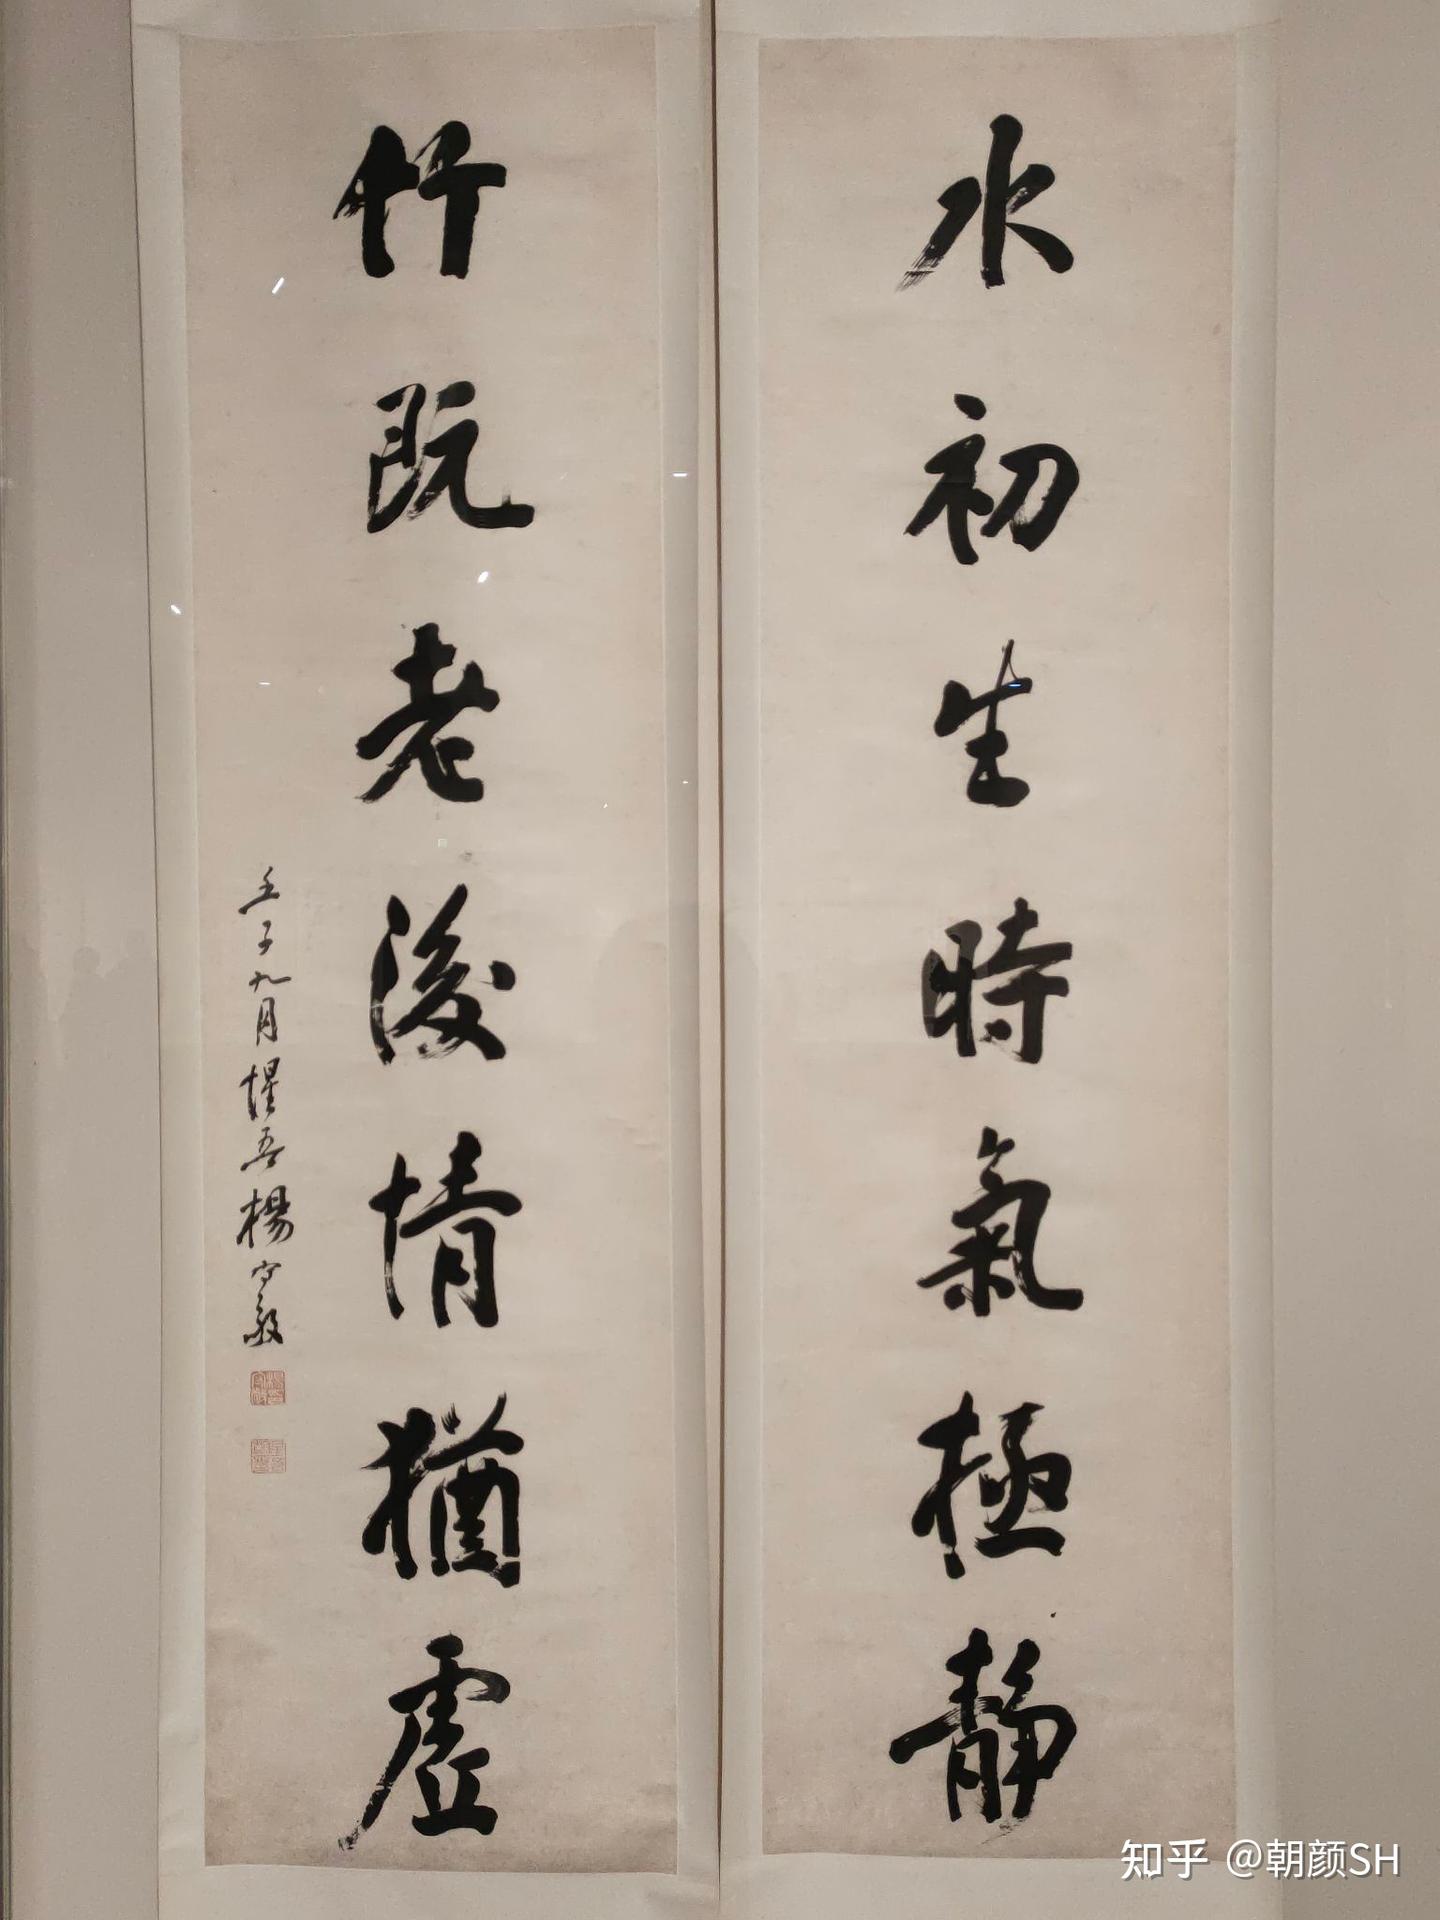 水初生時氣極靜
竹既老後情猶虛
壬子九月惺吾楊守敬
知乎 @朝颜SH